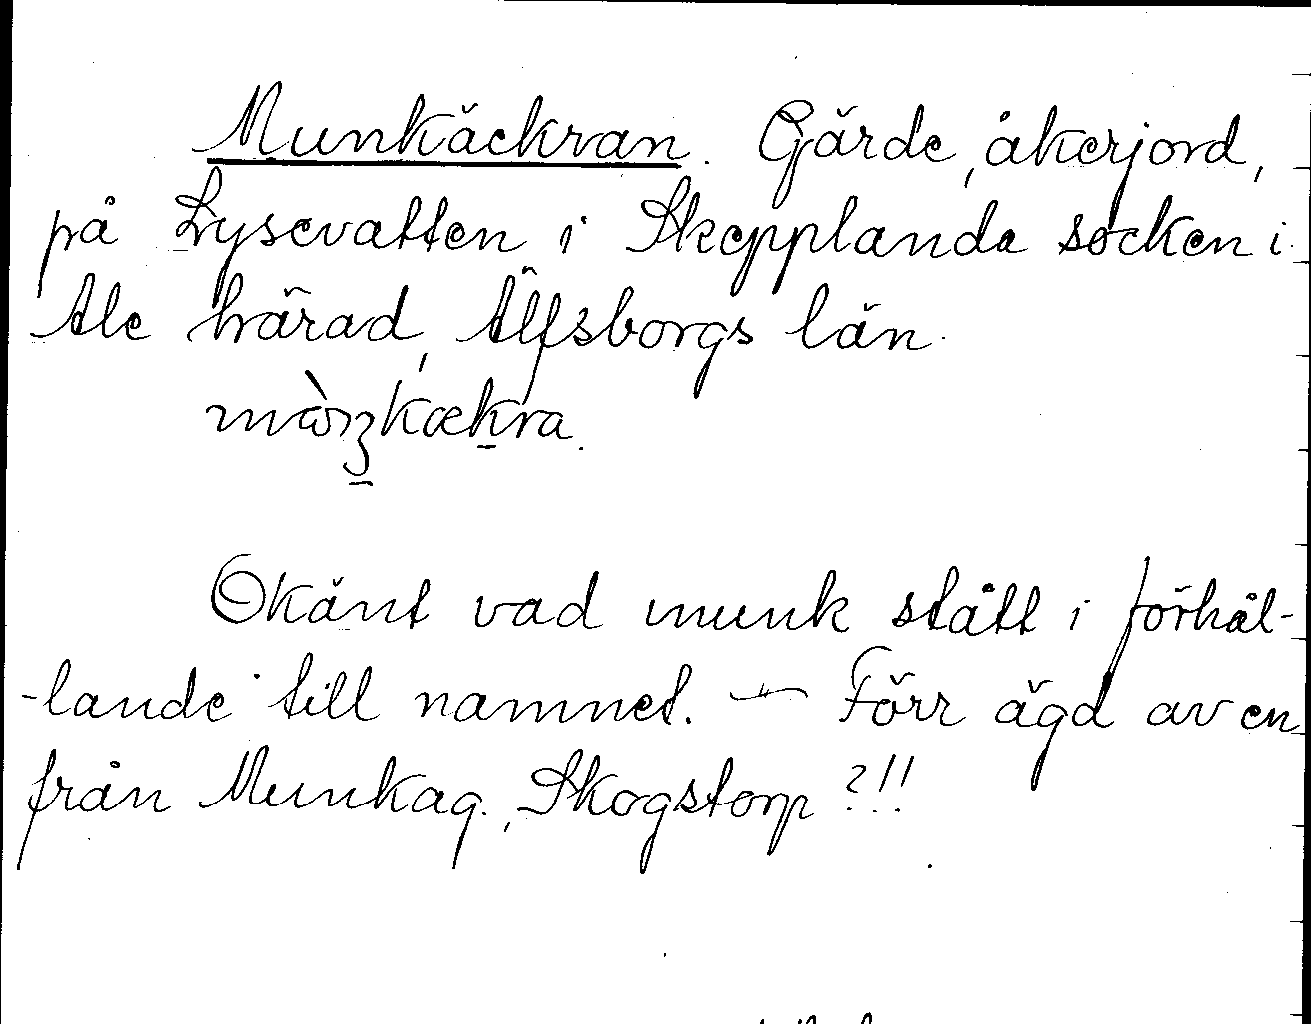 Munkäckran. Gärde, åkerjord,
på Lysevatten i Skepplanda socken i
Ale härad, Älfsborgs län.
Okänt vad munk stått i förhål-
-lande till namnet. — Förr ägd av en
från Munkag., Skogstorp ?!!